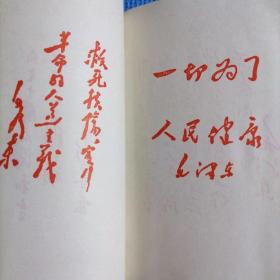 救死扶伤，实行
革命的人道主义
毛泽东
一切为了
人民健康
毛泽东